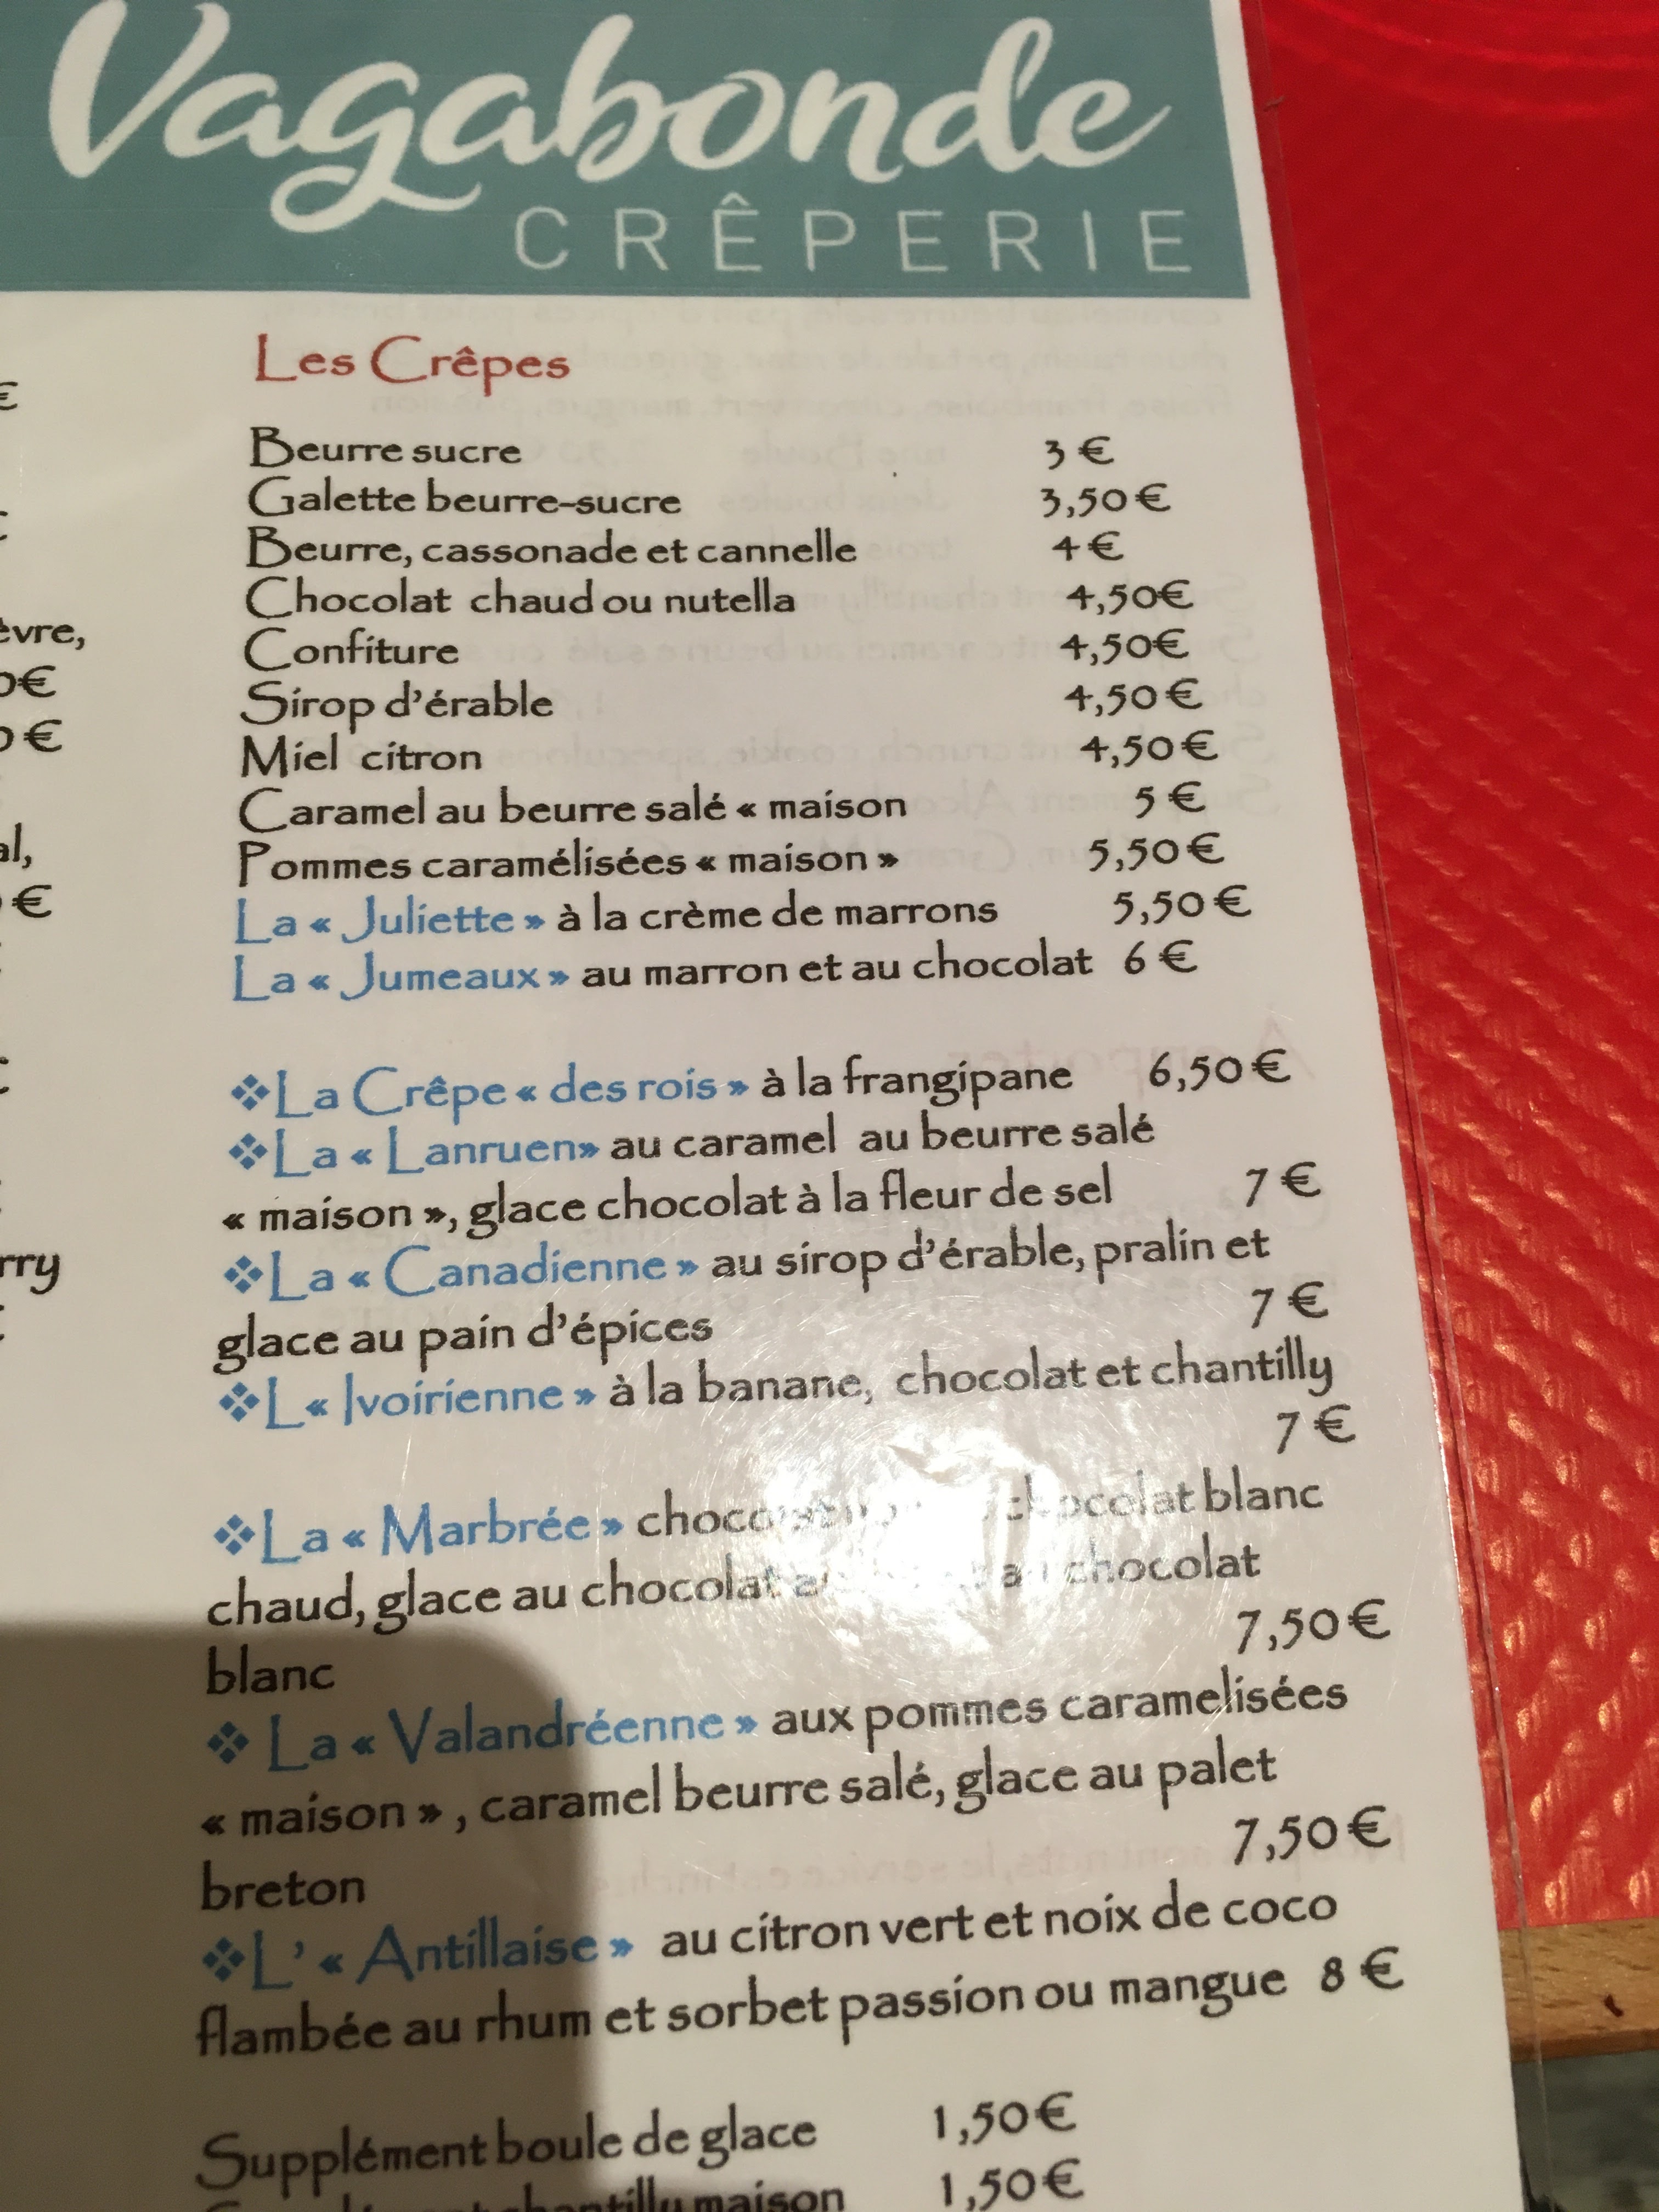 Vagabonde
CRÊPERIE
Les Crêpes
€
Beurre sucre 3 €
Galette beurre-sucre 3,50 €
Beurre, cassonade et cannelle 4 €
Chocolat chaud ou nutella 4,50€
èvre,
Confiture 4,50€
€
Sirop d'érable 4,50 €
€
Miel citron 4,50 €
Caramel au beurre salé « maison 5 €
al,
Pommes caramélisées « maison » 5,50 €
€
La « Juliette » à la crème de marrons 5,50 €
La « Jumeaux » au marron et au chocolat 6 €
❖La Crêpe « des rois » à la frangipane 6,50 €
❖La « Lanruen» au caramel au beurre salé
« maison », glace chocolat à la fleur de sel 7 €
rry
❖La « Canadienne » au sirop d'érable, pralin et
glace au pain d'épices 7 €
❖L« Ivoirienne » à la banane, chocolat et chantilly
7 €
❖La « Marbrée » chocolat chocolat blanc
chaud, glace au chocolat chocolat
blanc 7,50 €
❖ La « Valandréenne » aux pommes caramelisées
« maison » , caramel beurre salé, glace au palet
breton 7,50 €
❖L' « Antillaise » au citron vert et noix de coco
flambée au rhum et sorbet passion ou mangue 8 €
Supplément boule de glace 1,50€
Supplément chantilly maison 1,50€